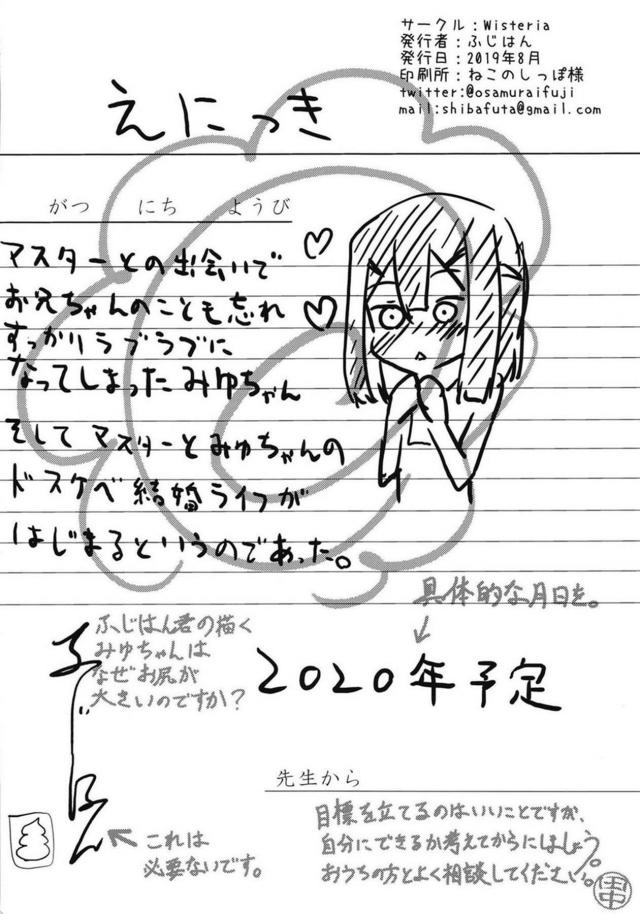 サークル：Wisteria
発行者：ふじはん
発行日：2019年8月
印刷所：ねこのしっぽ様
twitter:@osamuraifuji
mail:shibafuta@gmail.com
えにっき
がつ　にち　ようび
マスターとの出会いで
お兄ちゃんのことも忘れ
すっかりラブラブに
なってしまったみゆちゃん
そしてマスターとみゆちゃんの
ドスケベ結婚ライフが
はじまるというのであった。
具体的な月日を。
2020年予定
ふじはん君の描く
みゆちゃんは
なぜお尻が
大きいのですか？
ふじはん
これは
必要ないです。
先生から
目標を立てるのはいいことですが、
自分にできるか考えてからにしましょう。
おうちの方とよく相談してください。
田中